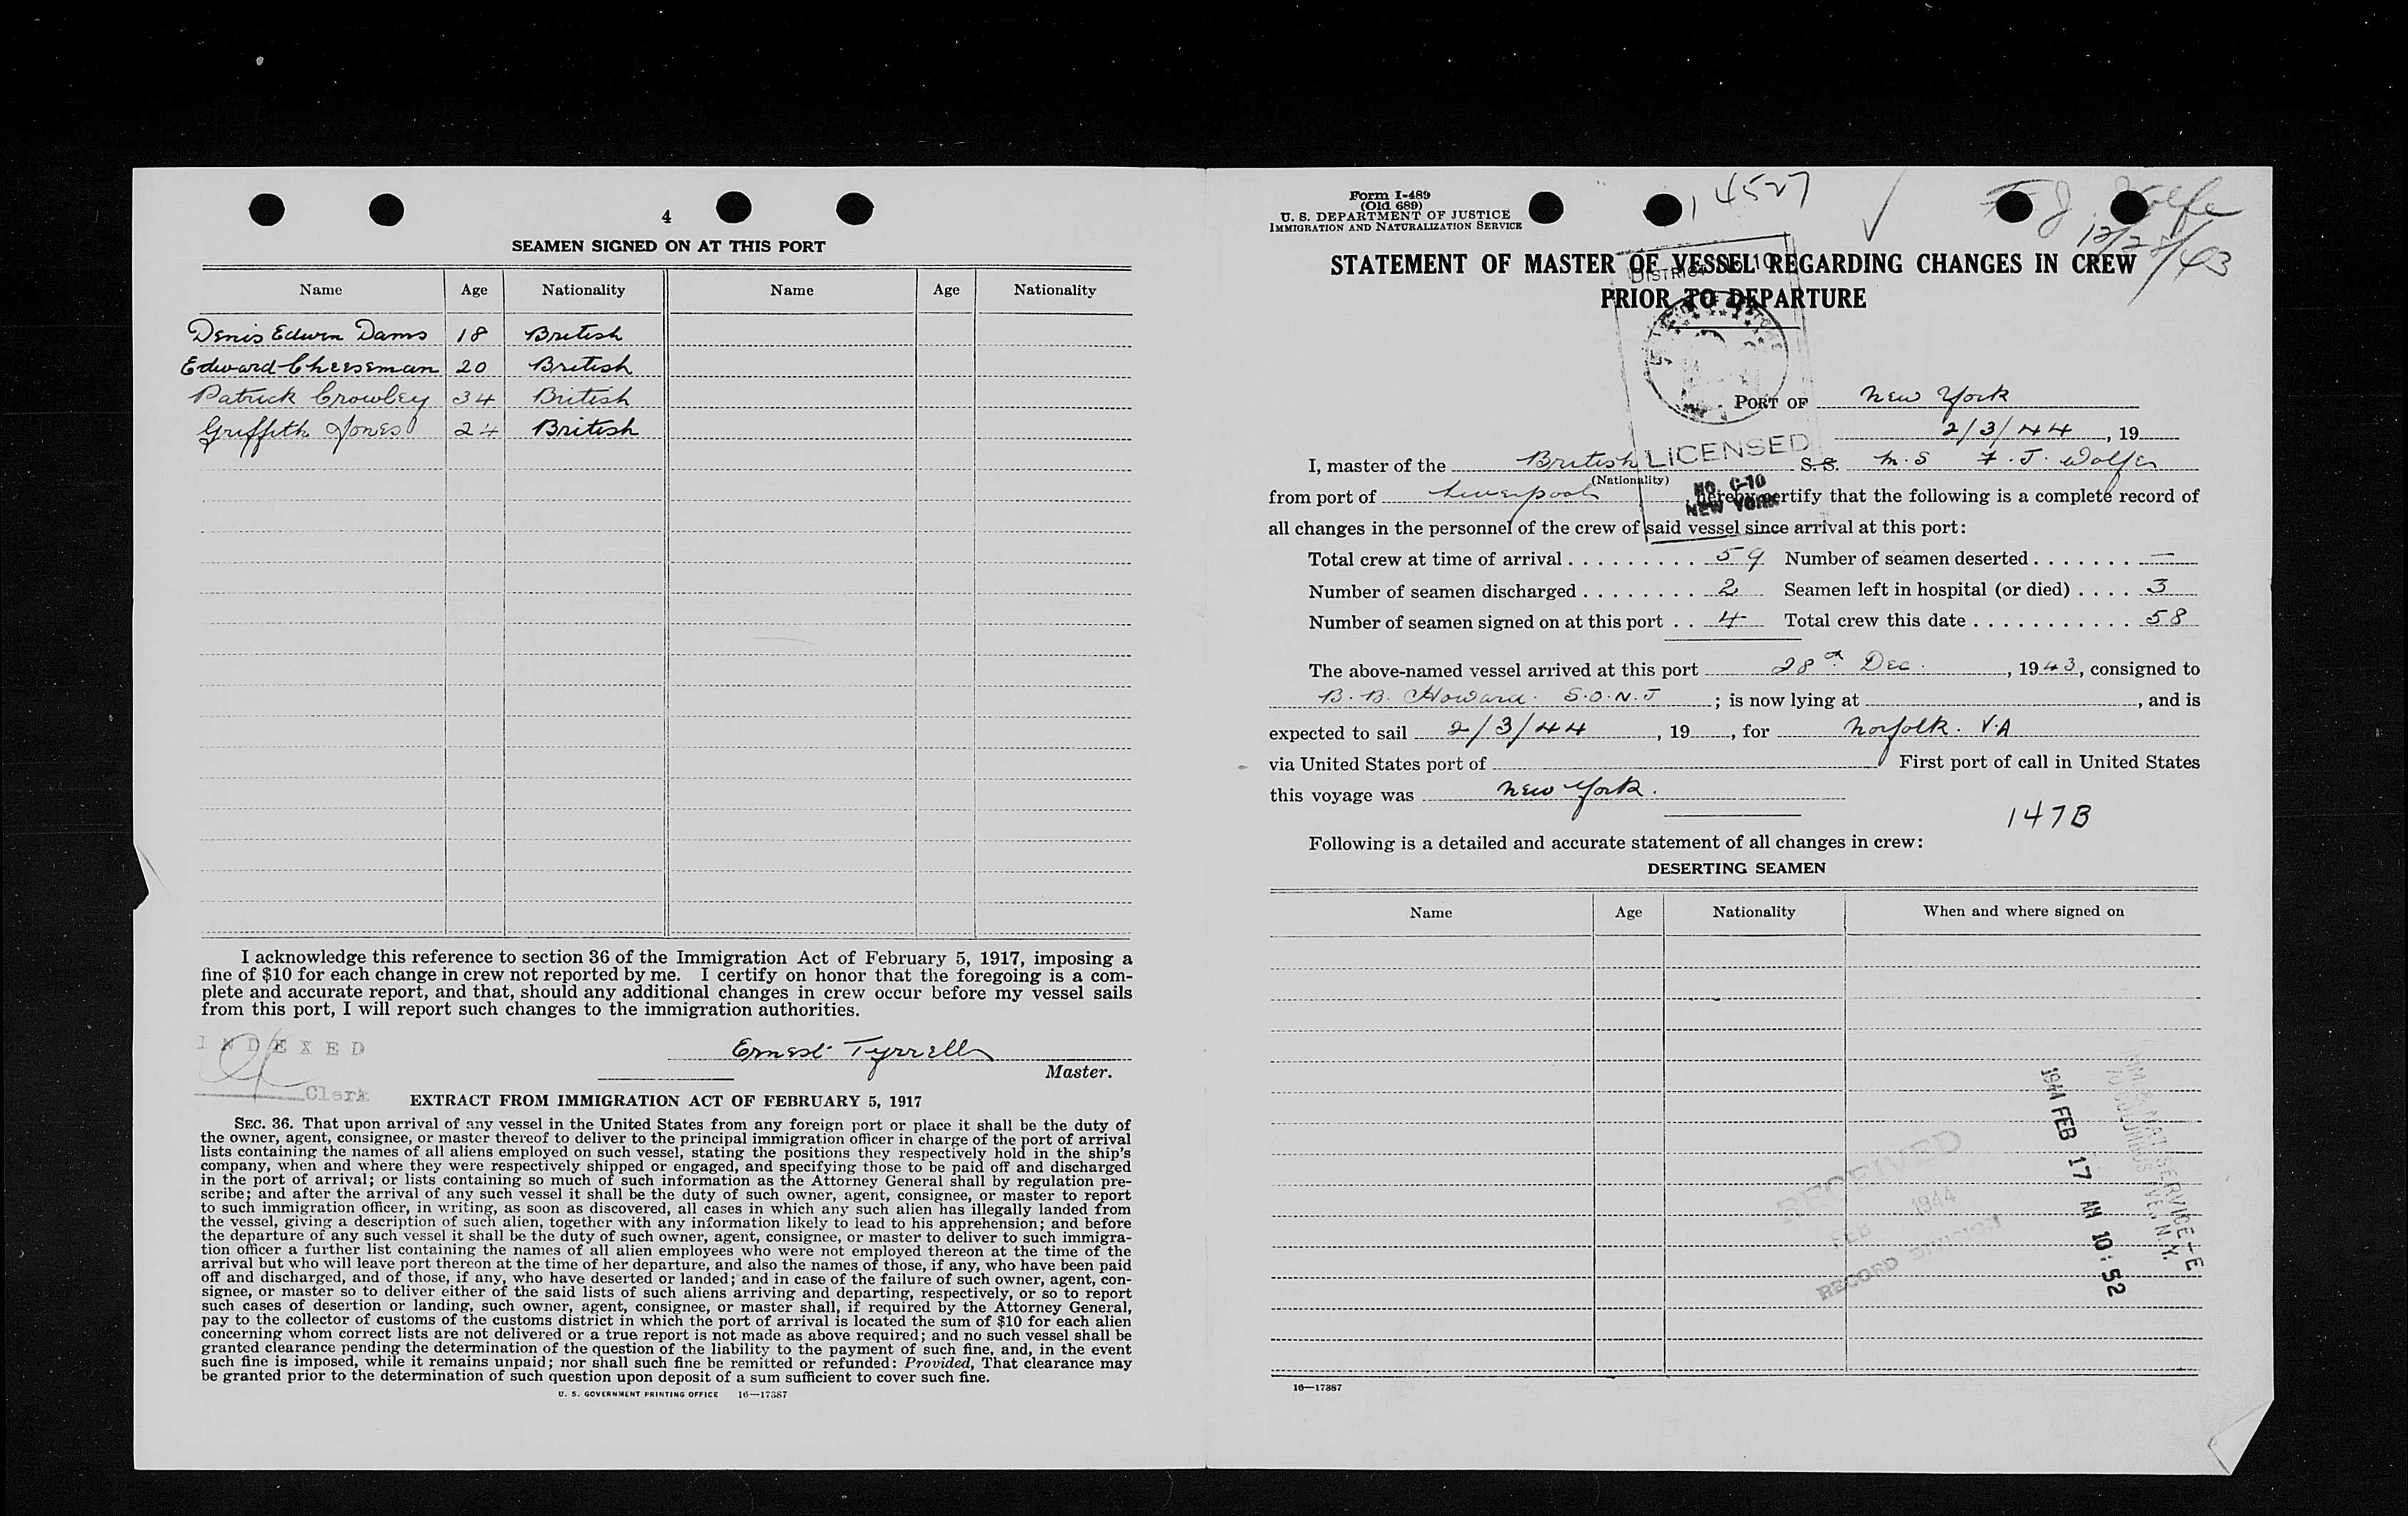 4
SEAMEN SIGNED ON AT THIS PORT
Name Age Nationality Name Age Nationality
Denis Edwin Dams 18 British
Edward Cheeseman 20 British
Patrick Crowley 34 British
Griffith Jones 24 British
I acknowledge this reference to section 36 of the Immigration Act of February 5, 1917, imposing a
fine of $10 for each change in crew not reported by me. I certify on honor that the foregoing is a com-
plete and accurate report, and that, should any additional changes in crew occur before my vessel sails
from this port, I will report such changes to the immigration authorities.
INDEXED
Ernest Tyrrell
Master.
Clerk
EXTRACT FROM IMMIGRATION ACT OF FEBRUARY 5, 1917
SEC. 36. That upon arrival of any vessel in the United States from any foreign port or place it shall be the duty of
the owner, agent, consignee, or master thereof to deliver to the principal immigration officer in charge of the port of arrival
lists containing the names of all aliens employed on such vessel, stating the positions they respectively hold in the ship's
company, when and where they were respectively shipped or engaged, and specifying those to be paid off and discharged
in the port of arrival; or lists containing so much of such information as the Attorney General shall by regulation pre-
scribe; and after the arrival of any such vessel it shall be the duty of such owner, agent, consignee, or master to report
to such immigration officer, in writing, as soon as discovered, all cases in which any such alien has illegally landed from
the vessel, giving a description of such alien, together with any information likely to lead to his apprehension; and before
the departure of any such vessel it shall be the duty of such owner, agent, consignee, or master to deliver to such immigra-
tion officer a further list containing the names of all alien employees who were not employed thereon at the time of the
arrival but who will leave port thereon at the time of her departure, and also the names of those, if any, who have been paid
off and discharged, and of those, if any, who have deserted or landed; and in case of the failure of such owner, agent, con-
signee, or master so to deliver either of the said lists of such aliens arriving and departing, respectively, or so to report
such cases of desertion or landing, such owner, agent, consignee, or master shall, if required by the Attorney General,
pay to the collector of customs of the customs district in which the port of arrival is located the sum of $10 for each alien
concerning whom correct lists are not delivered or a true report is not made as above required; and no such vessel shall be
granted clearance pending the determination of the question of the liability to the payment of such fine, and, in the event
such fine is imposed, while it remains unpaid; nor shall such fine be remitted or refunded: Provided, That clearance may
be granted prior to the determination of such question upon deposit of a sum sufficient to cover such fine.
U. S. GOVERNMENT PRINTING OFFICE 16—17387
Form I-489
(Old 689)
U. S. DEPARTMENT OF JUSTICE
IMMIGRATION AND NATURALIZATION SERVICE
14527
F J Wolfe
12/28/43
STATEMENT OF MASTER OF VESSEL REGARDING CHANGES IN CREW
PRIOR TO DEPARTURE
DISTRICT NO. 10
LICENSED
NO. C-10
NEW YORK
PORT OF New York
2/3/44, 19
I, master of the British S.S. M.S F. J. Wolfe
(Nationality)
from port of Liverpool, hereby certify that the following is a complete record of
all changes in the personnel of the crew of said vessel since arrival at this port:
Total crew at time of arrival . . . . . . . . . 59 Number of seamen deserted . . . . . . . —
Number of seamen discharged . . . . . . . . 2 Seamen left in hospital (or died) . . . . 3
Number of seamen signed on at this port . . 4 Total crew this date . . . . . . . . . . . 58
The above-named vessel arrived at this port 28th Dec., 1943, consigned to
B. B. Howard. S.O.N.J; is now lying at , and is
expected to sail 2/3/44, 19 , for Norfolk. VA
via United States port of First port of call in United States
this voyage was New York.
147B
Following is a detailed and accurate statement of all changes in crew:
DESERTING SEAMEN
Name Age Nationality When and where signed on
RECEIVED
FEB 1944
RECORD DIVISION
1944 FEB 17 AM 10:52
IMM & NAT SERVICE
70 COLUMBUS AVE. N.Y.
16—17387